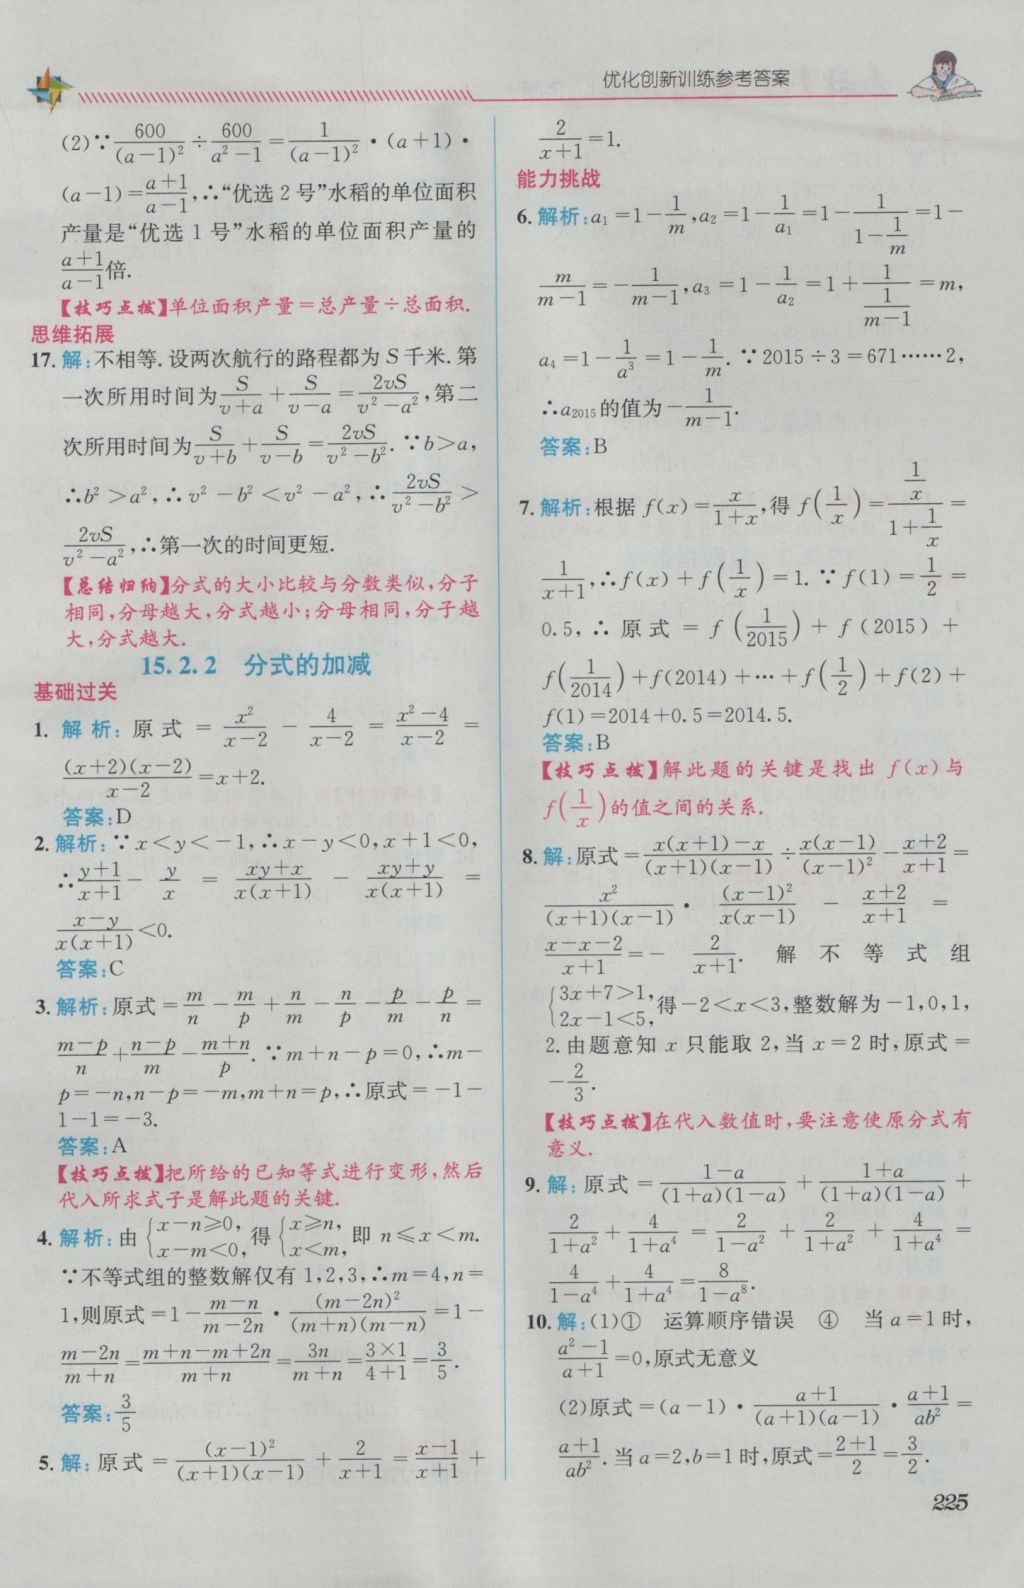 优化创新训练参考答案
(2)∵600/(a-1)²÷600/(a²-1)=1/(a-1)²·(a+1)·
(a-1)=(a+1)/(a-1),∴“优选2号”水稻的单位面积
产量是“优选1号”水稻的单位面积产量的
(a+1)/(a-1)倍.
【技巧点拨】单位面积产量=总产量÷总面积.
思维拓展
17.解:不相等.设两次航行的路程都为S千米.第
一次所用时间为S/(v+a)+S/(v-a)=2vS/(v²-a²),第二
次所用时间为S/(v+b)+S/(v-b)=2vS/(v²-b²).∵b>a,
∴b²>a²,∴v²-b²<v²-a²,∴2vS/(v²-b²)>
2vS/(v²-a²),∴第一次的时间更短.
【总结归纳】分式的大小比较与分数类似,分子
相同,分母越大,分式越小;分母相同,分子越
大,分式越大.
15.2.2 分式的加减
基础过关
1.解析:原式=x²/(x-2)-4/(x-2)=(x²-4)/(x-2)=
(x+2)(x-2)/(x-2)=x+2.
答案:D
2.解析:∵x<y<-1,∴x-y<0,x+1<0,
∴(y+1)/(x+1)-y/x=(xy+x)/(x(x+1))-(xy+y)/(x(x+1))=
(x-y)/(x(x+1))<0.
答案:C
3.解析:原式=m/n-m/p+n/m-n/p-p/m-p/n=
(m-p)/n+(n-p)/m-(m+n)/p.∵m+n-p=0,∴m-
p=-n,n-p=-m,m+n=p,∴原式=-1-
1-1=-3.
答案:A
【技巧点拨】把所给的已知等式进行变形,然后
代入所求式子是解此题的关键.
4.解析:由{x-n≥0,x-m<0,得{x≥n,x<m,即n≤x<m.
∵不等式组的整数解仅有1,2,3,∴m=4,n=
1,则原式=1-(m-n)/(m-2n)·(m-2n)²/((m+n)(m-n))=1-
(m-2n)/(m+n)=(m+n-m+2n)/(m+n)=3n/(m+n)=(3×1)/(4+1)=3/5.
答案:3/5
5.解:原式=(x-1)²/((x+1)(x-1))+2/(x+1)=(x-1)/(x+1)+
2/(x+1)=1.
能力挑战
6.解析:a₁=1-1/m,a₂=1-1/a₁=1-1/(1-1/m)=1-
m/(m-1)=-1/(m-1),a₃=1-1/a₂=1+1/(1/(m-1))=m,
a₄=1-1/a³=1-1/m.∵2015÷3=671……2,
∴a₂₀₁₅的值为-1/(m-1).
答案:B
7.解析:根据f(x)=x/(1+x),得f(1/x)=(1/x)/(1+1/x)=
1/(x+1),∴f(x)+f(1/x)=1.∵f(1)=1/2=
0.5,∴原式=f(1/2015)+f(2015)+
f(1/2014)+f(2014)+…+f(1/2)+f(2)+
f(1)=2014+0.5=2014.5.
答案:B
【技巧点拨】解此题的关键是找出f(x)与
f(1/x)的值之间的关系.
8.解:原式=(x(x+1)-x)/((x+1)(x-1))÷x(x-1)/(x-1)²-(x+2)/(x+1)=
x²/((x+1)(x-1))·(x-1)²/(x(x-1))-(x+2)/(x+1)=
(x-x-2)/(x+1)=-2/(x+1).解不等式组
{3x+7>1,2x-1<5,得-2<x<3,整数解为-1,0,1,
2.由题意知x只能取2,当x=2时,原式=
-2/3.
【技巧点拨】在代入数值时,要注意使原分式有
意义.
9.解:原式=(1-a)/((1+a)(1-a))+(1+a)/((1+a)(1-a))+
2/(1+a²)+4/(1+a⁴)=2/(1-a²)+2/(1+a²)+4/(1+a⁴)=
4/(1-a⁴)+4/(1+a⁴)=8/(1-a⁸).
10.解:(1)① 运算顺序错误 ④ 当a=1时,
(a²-1)/(a+1)=0,原式无意义
(2)原式=(a-1)·(a+1)/((a+1)(a-1))·(a+1)/ab²=
(a+1)/ab².当a=2,b=1时,原式=(2+1)/2=3/2.
225